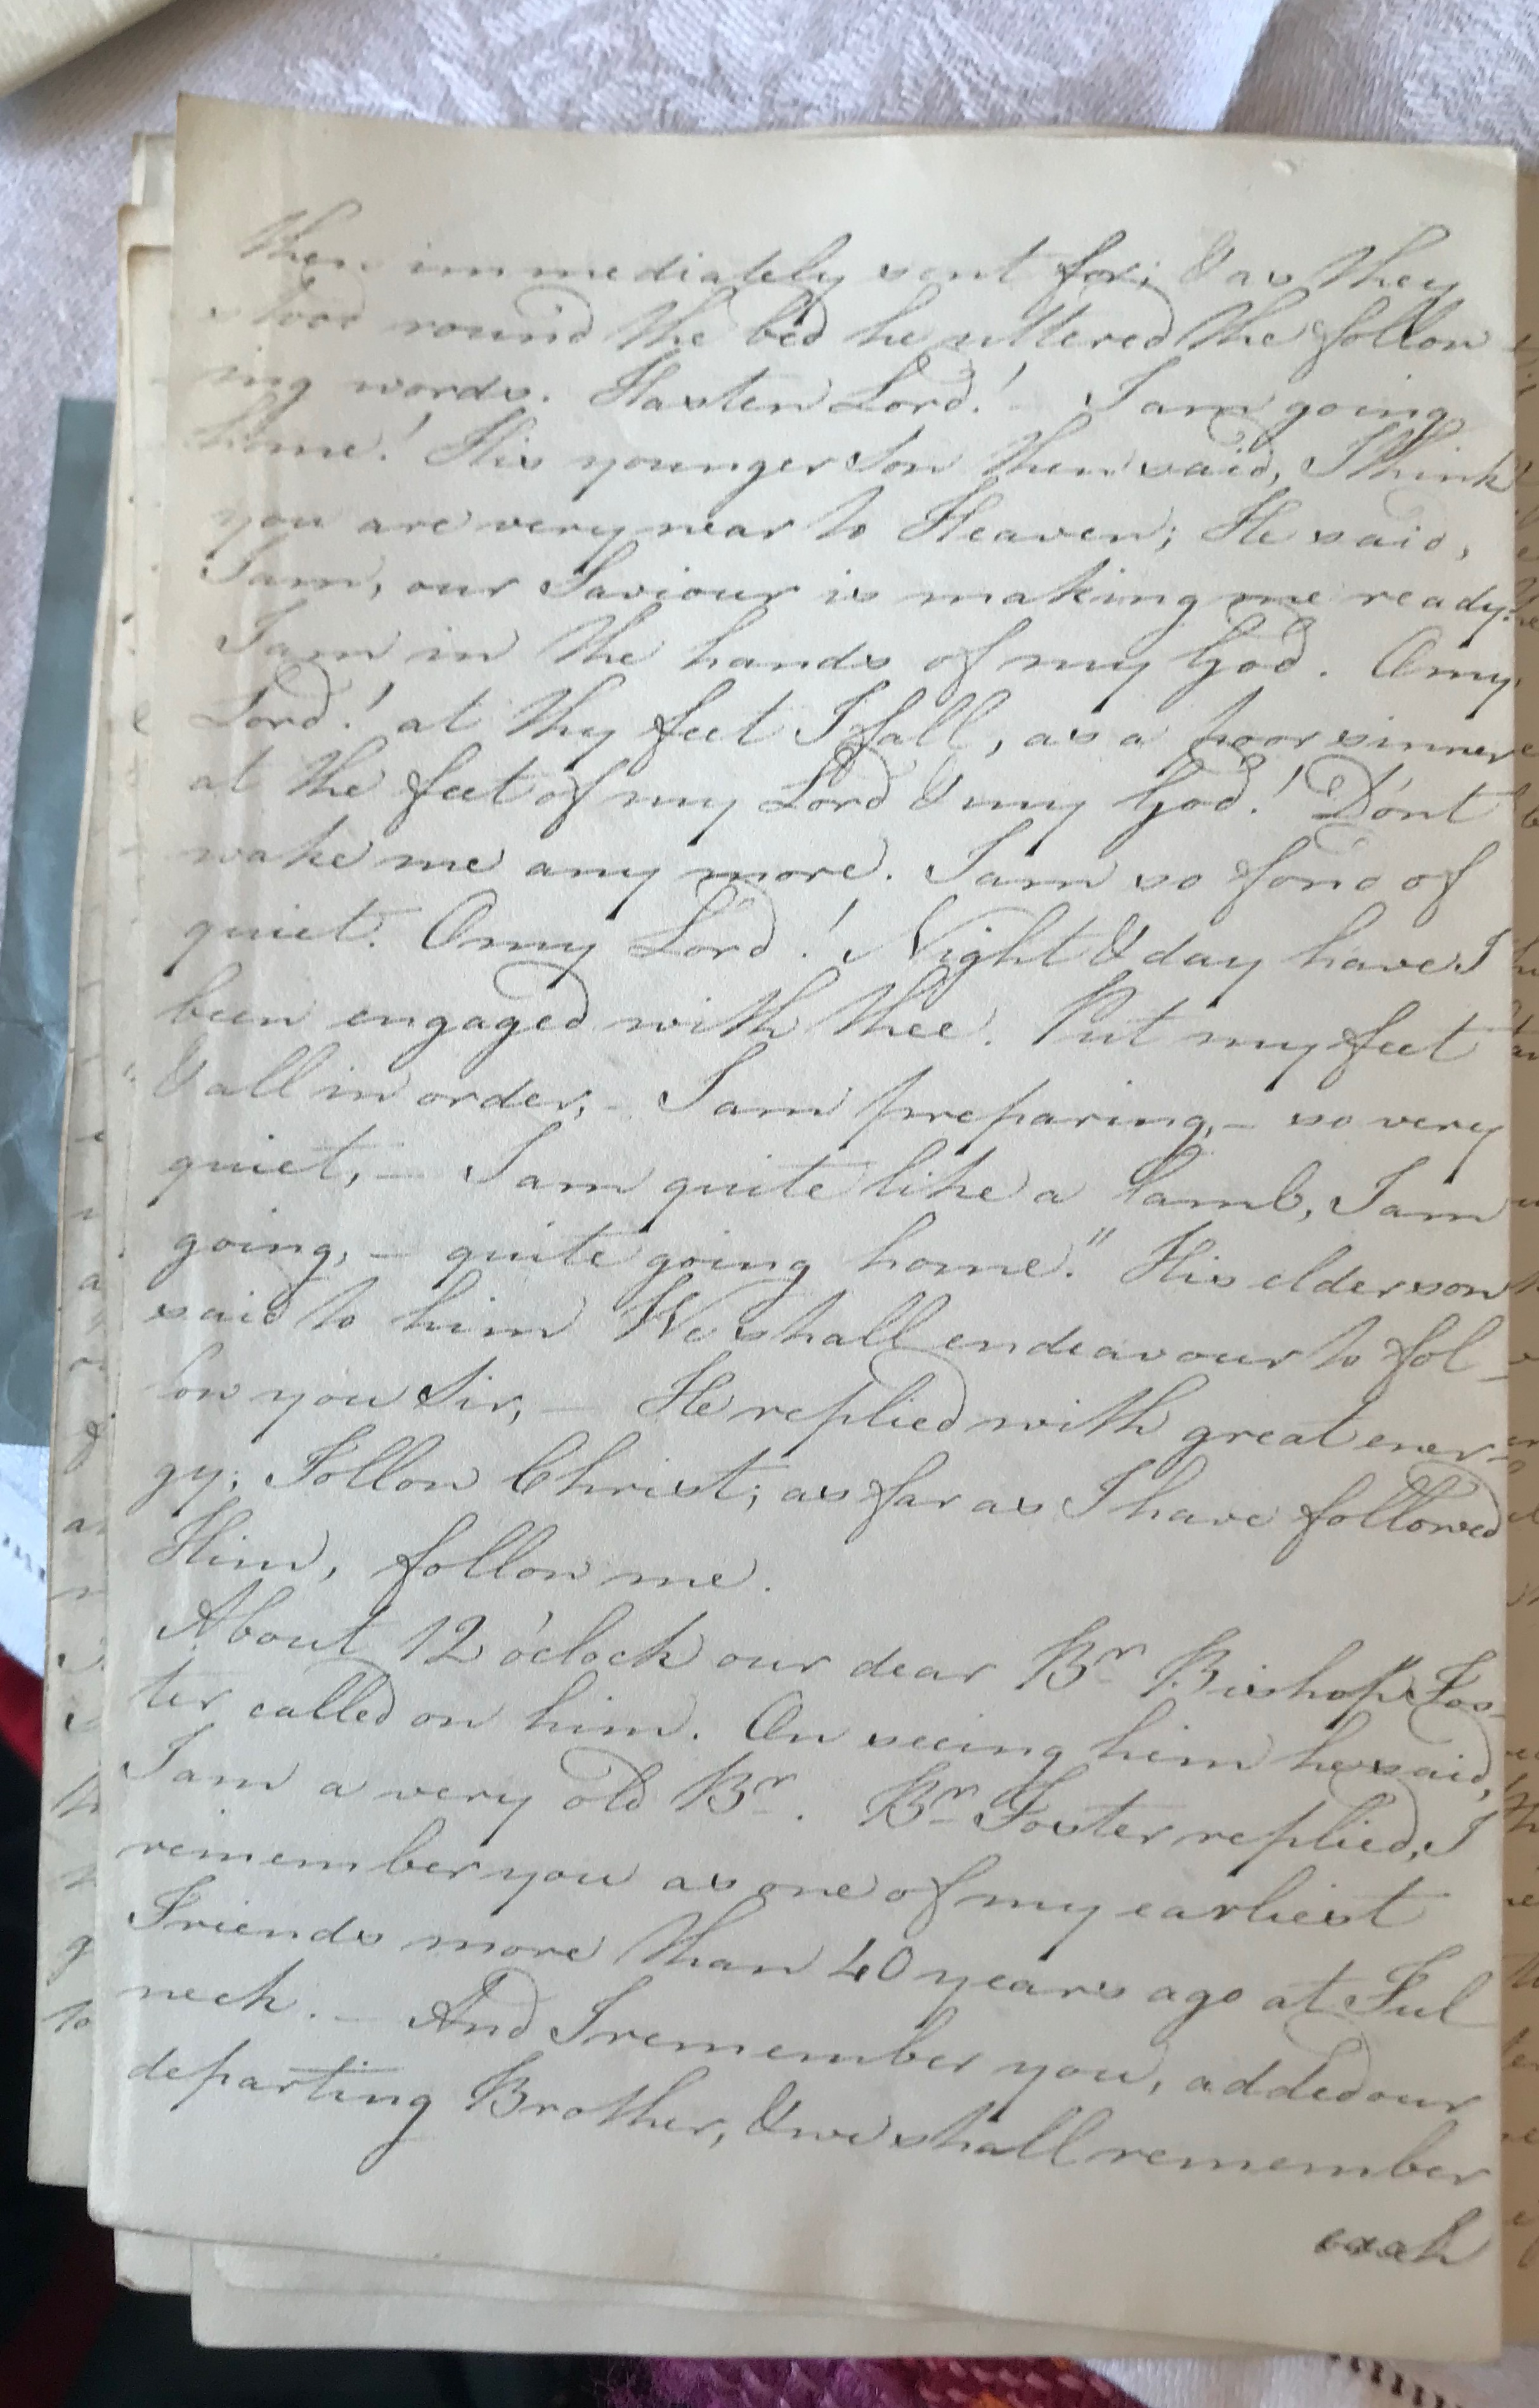 then immediately sent for; & as they
stood round the bed he uttered the follow
ing words. Hasten Lord! – I am going
home! His younger Son then said, I think
you are very near to Heaven; He said,
I am, our Saviour is making me ready.
I am in the hands of my God. O my
Lord! at thy feet I fall, as a poor sinner
at the feet of my Lord & my God! Do'nt
wake me any more. I am so fond of
quiet. O my Lord! Night & day have I
been engaged with thee. Put my feet
& all in order; – I am preparing, – so very
quiet, – I am quite like a lamb, I am
going, – quite going home." His elder son
said to him We shall endeavour to fol–
low you Sir, – He replied with great ener–
gy; Follow Christ; as far as I have followed
Him, follow me.
About 12 o'clock our dear Br. Bishop Fos–
ter called on him. On seeing him he said,
I am a very old Br. Br. Foster replied, I
remember you as one of my earliest
Friends more than 40 years ago at Ful
neck. – And I remember you, added our
departing Brother, & we shall remember
each